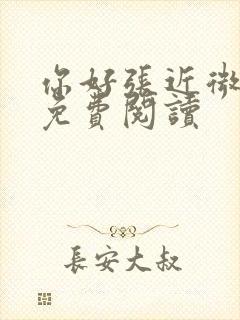 你好張近微
免費閱讀
長安大叔